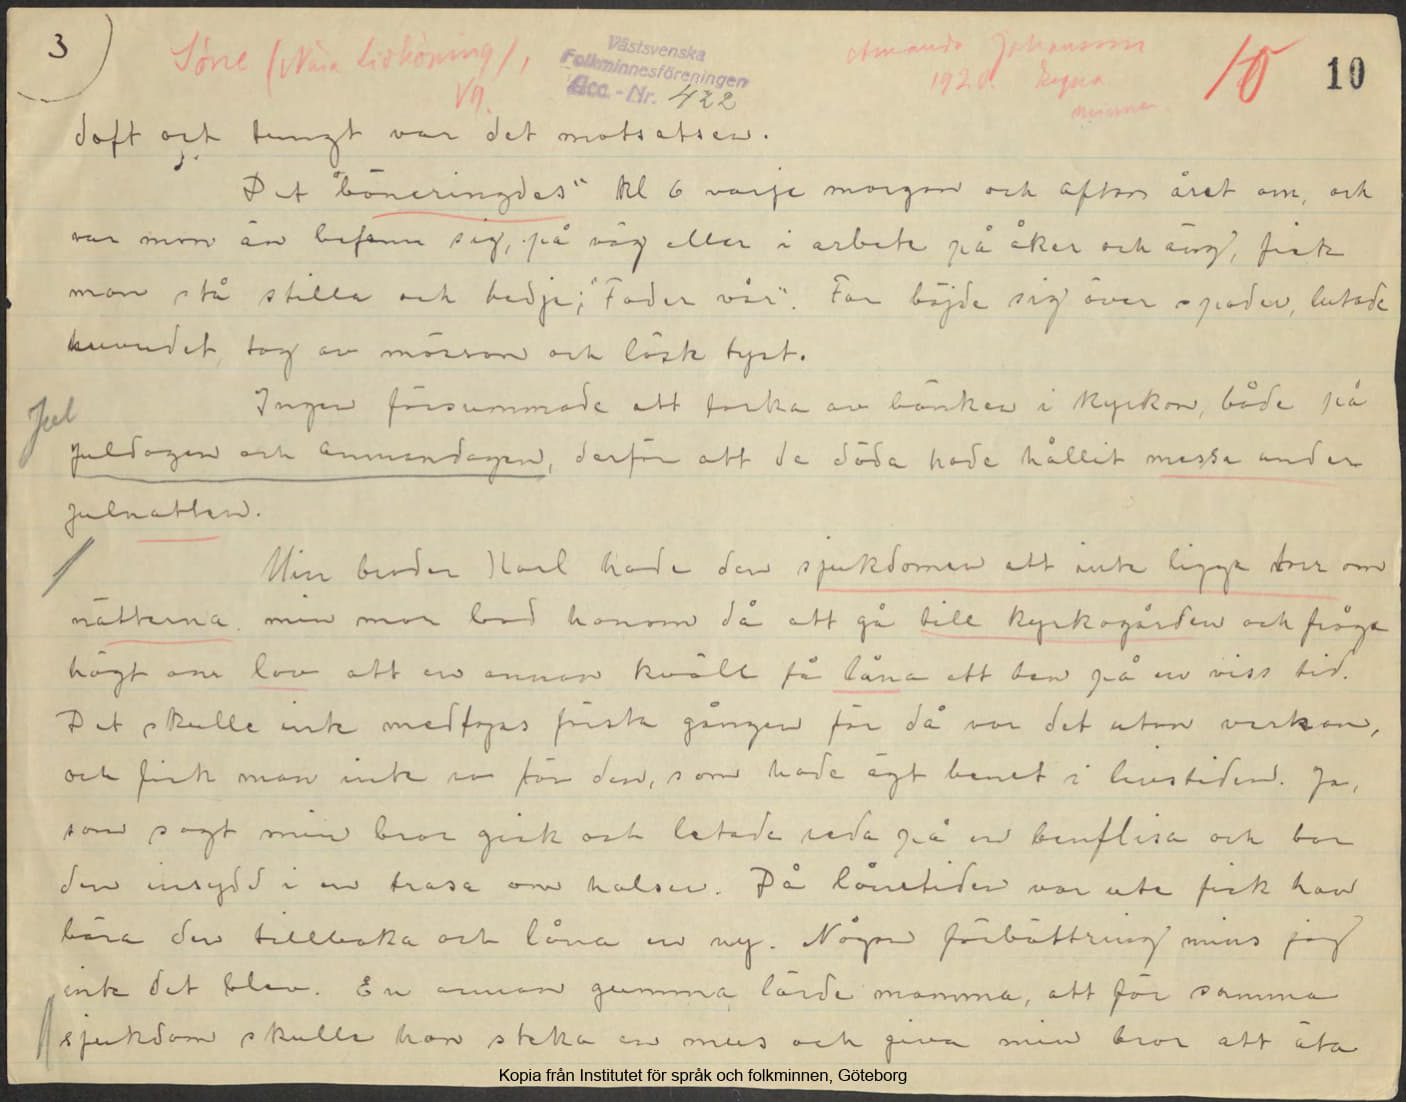 3
Söne (Nära Lidköping),
Vg.
Västsvenska
Folkminnesföreningen
Acc. - Nr. 422
Amanda Johansson
1920. Egna
minnen.
10
10
doft och tungt var det motsatsen.
Det "böneringdes" kl 6 varje morgon och afton året om, och
var man än befann sig, på väg eller i arbete på åker och äng, fick
man stå stilla och bedja; "Fader vår". Far böjde sig över spaden, lutade
huvudet, tog av mössan och läste tyst.
Jul
Ingen försummade att torka av bänken i kyrkan, både på
juldagen och annandagen, derför att de döda hade hållit messa under
julnatten.
Min broder Karl hade den sjukdomen att inte ligga torr om
nätterna. min mor bad honom då att gå till kyrkogården och fråga
högt om lov att en annan kväll få låna ett ben på en viss tid.
Det skulle inte medtagas första gången för då var det utan verkan,
och fick man inte ro för den, som hade ägt benet i livstiden. Ja,
som sagt min bror gick och letade reda på en benflisa och bar
den insydd i en trasa om halsen. Då lånetiden var ute fick han
bära den tillbaka och låna en ny. Någon förbättring mins jag
inte det blev. En annan gumma lärde mamma, att för samma
sjukdom skulle hon steka en mus och giva min bror att äta
Kopia från Institutet för språk och folkminnen, Göteborg